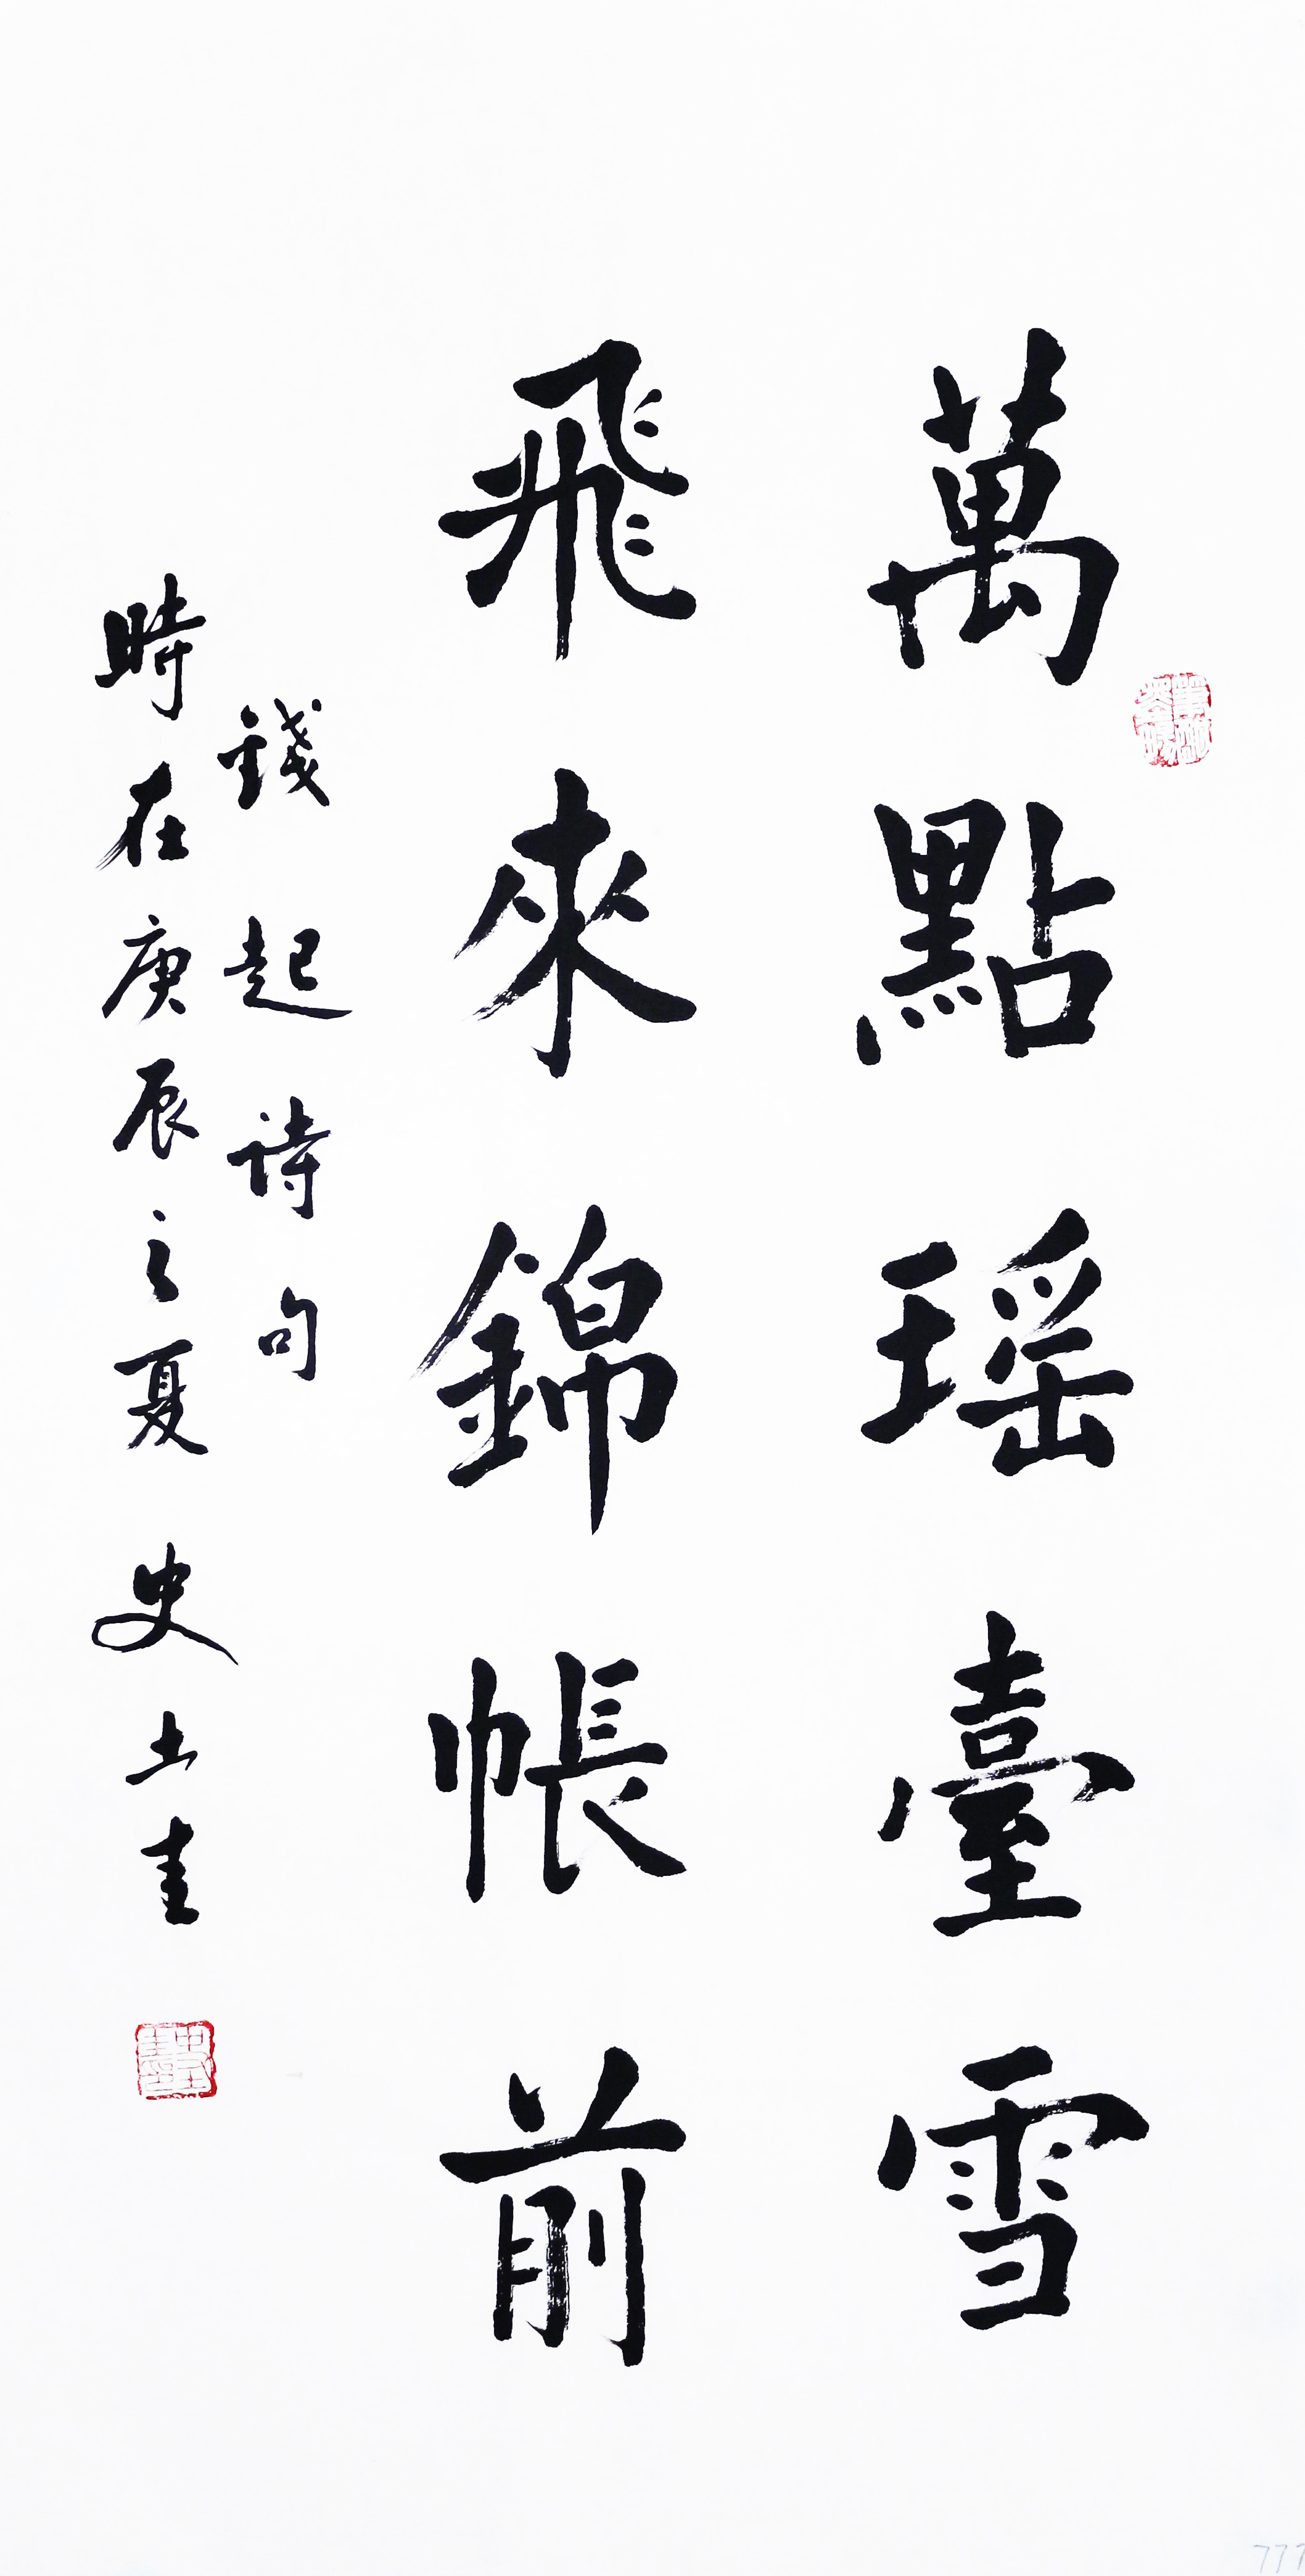 萬點瑶臺雪
飛來錦帳前
錢起詩句
時在庚辰之夏 史士奎
777